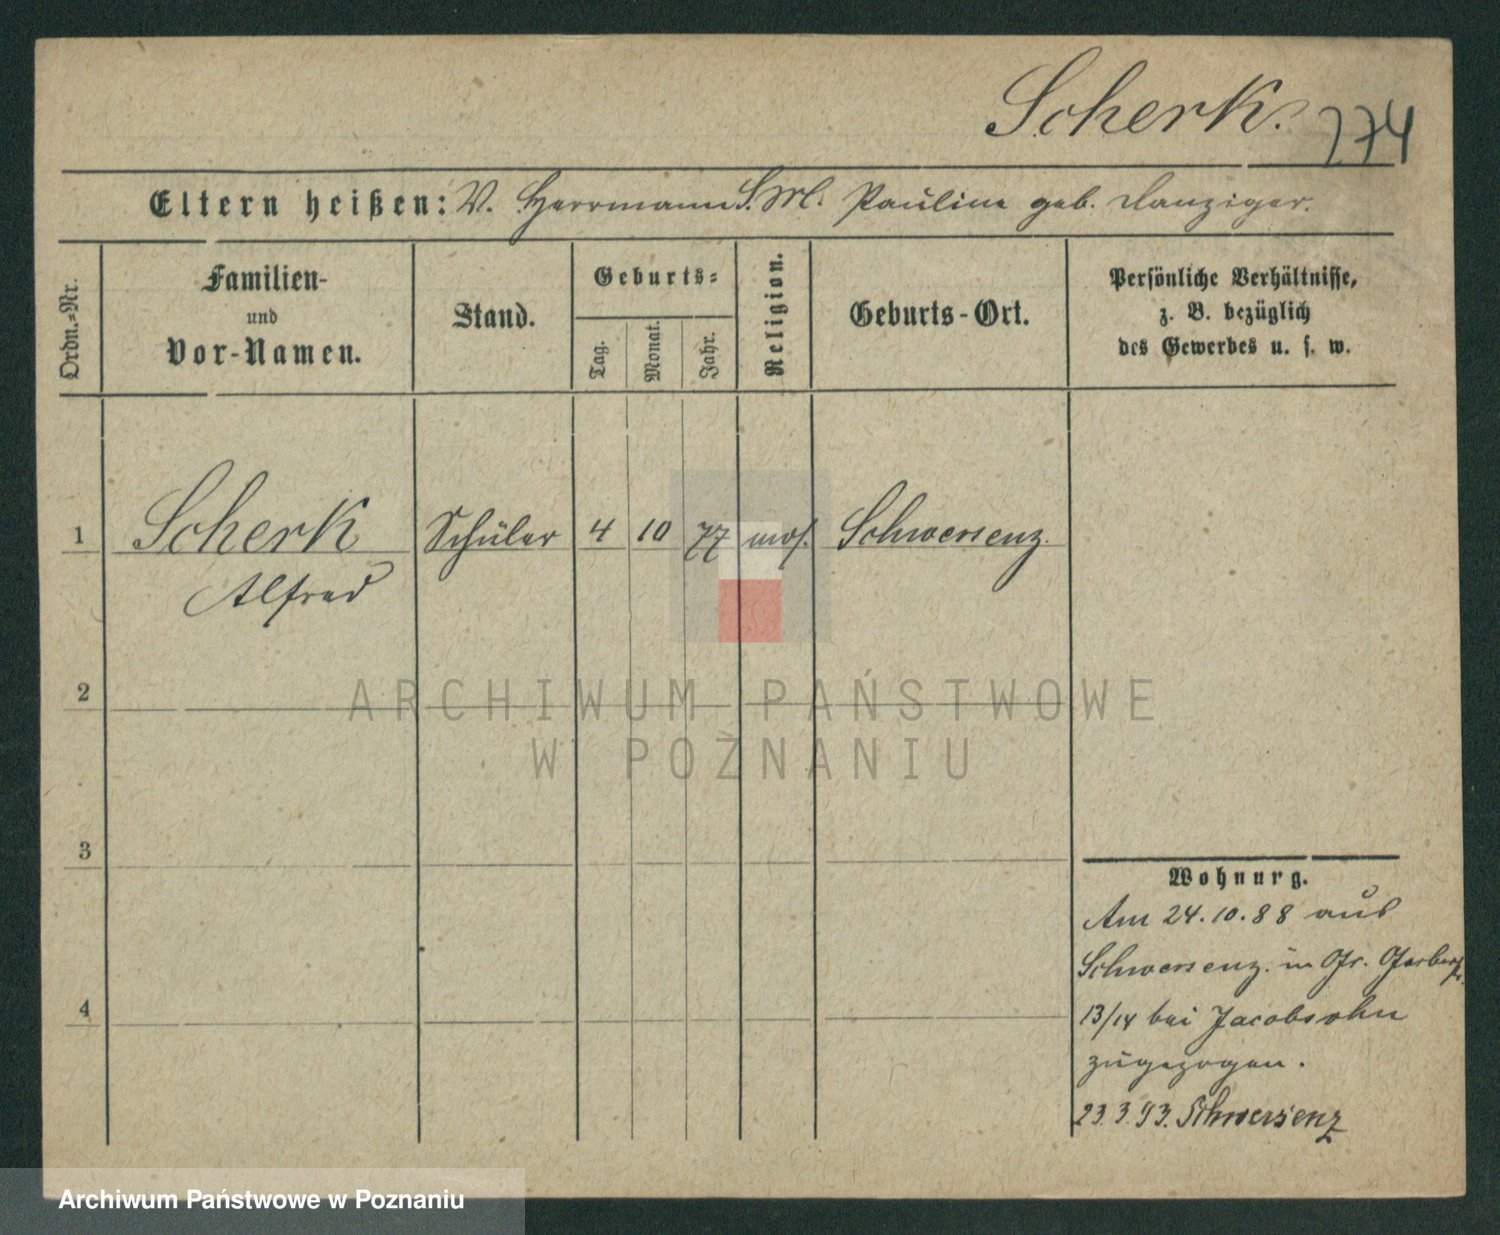 Scherk. 774
Eltern heißen: V. Herrmann S. M. Pauline geb. Danziger.
Ordn.=Nr.
Familien-
und
Vor-Namen.
Stand.
Geburts=
Tag.
Monat.
Jahr.
Religion.
Geburts-Ort.
Persönliche Verhältnisse,
z. B. bezüglich
des Gewerbes u. s. w.
1 Scherk Schüler 4 10 77 mos. Schwersenz.
Alfred
ARCHIWUM PAŃSTWOWE
W POZNANIU
2
3
4
Wohnurg.
Am 24.10.88 aus
Schwersenz. in Gr. Gerberst.
13/14 bei Jacobsohn
zugezogen.
23.3.93. Schwersenz
Archiwum Państwowe w Poznaniu